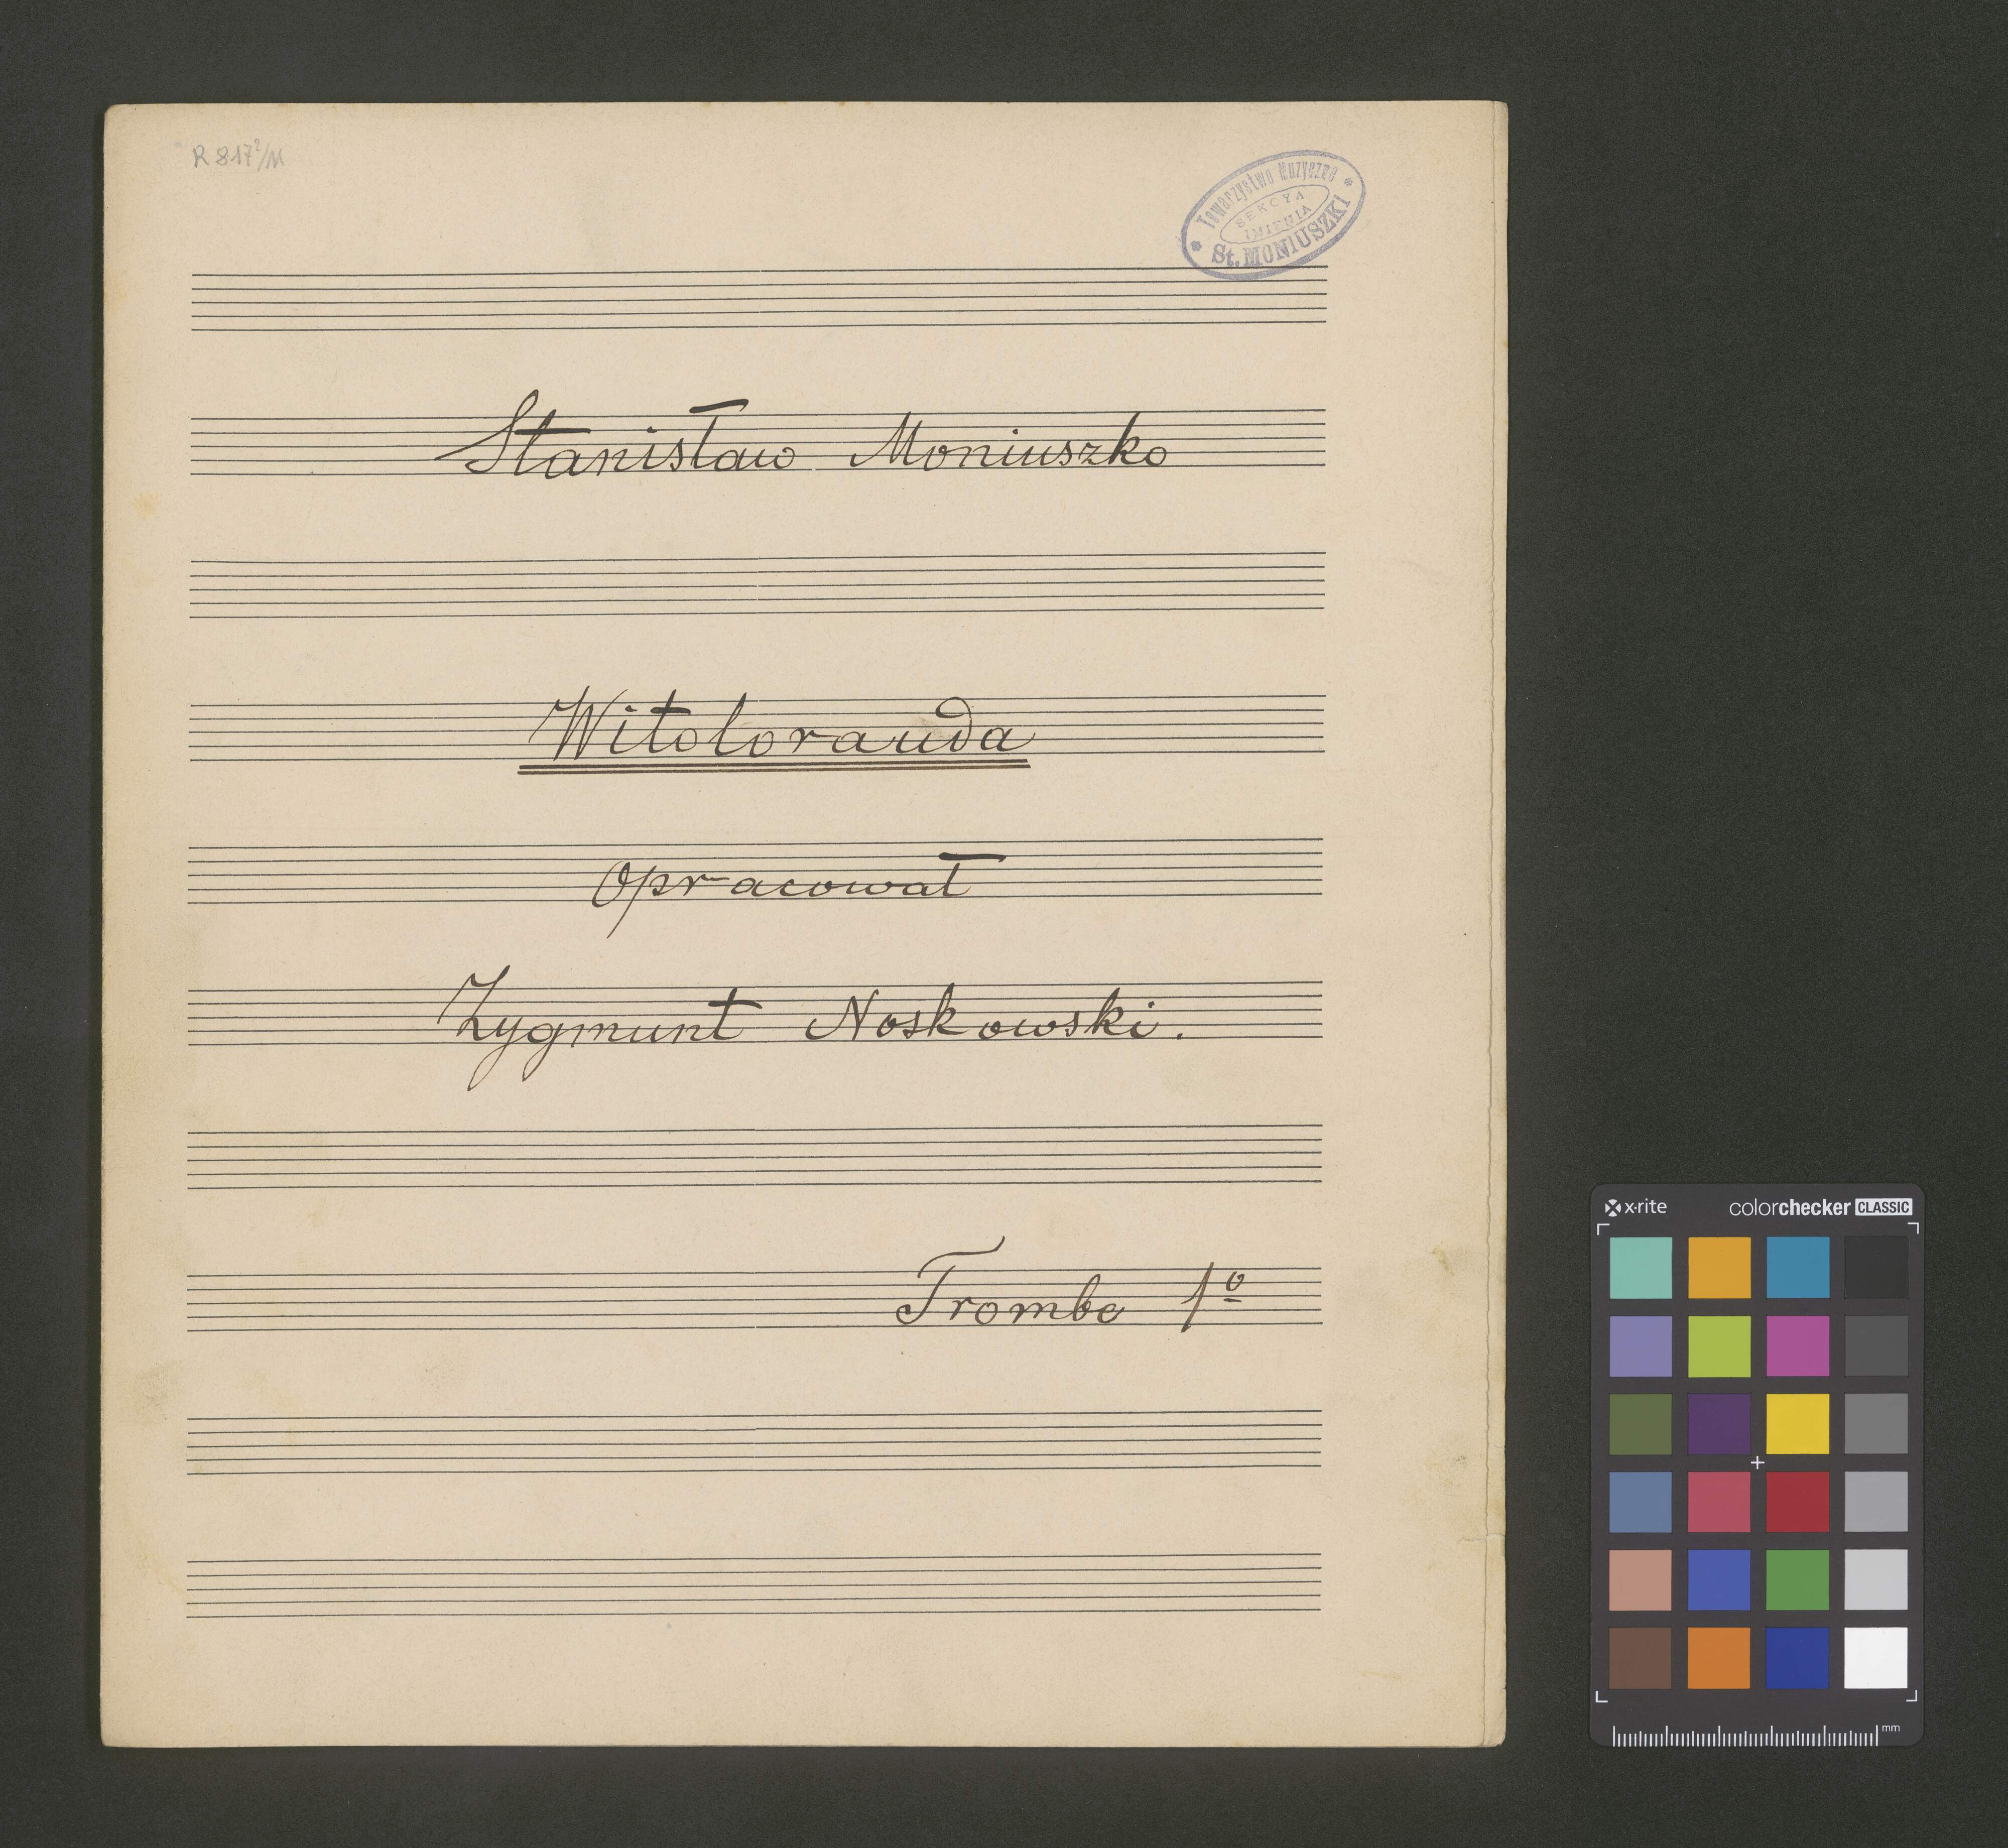 R 817²/11
Towarzystwo Muzyczne
SEKCYA
IMIENIA
St. MONIUSZKI
Stanisław Moniuszko
Witolorauda
Opracował
Zygmunt Noskowski.
Trombe 1º
x·rite colorchecker CLASSIC
mm